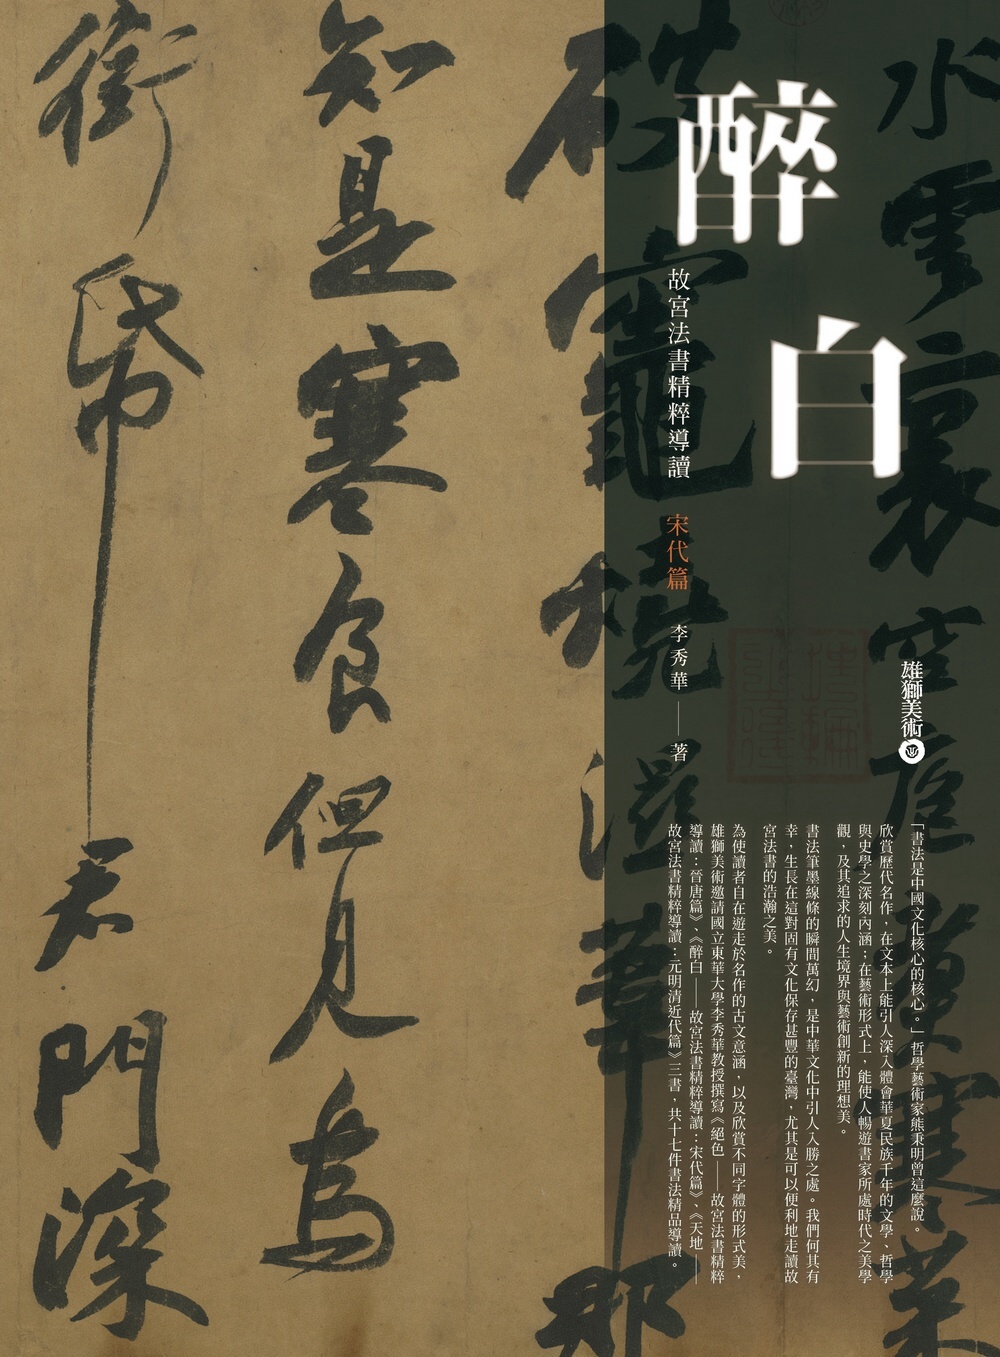 醉白
故宮法書精粹導讀 宋代篇 李秀華——著
雄獅美術
「書法是中國文化核心的核心。」哲學藝術家熊秉明曾這麼說。
欣賞歷代名作，在文本上能引人深入體會華夏民族千年的文學、哲學
與史學之深刻內涵；在藝術形式上，能使人暢遊書家所處時代之美學
觀，及其追求的人生境界與藝術創新的理想美。
書法筆墨線條的瞬間萬幻，是中華文化中引人入勝之處。我們何其有
幸，生長在這對固有文化保存甚豐的臺灣，尤其是可以便利地走讀故
宮法書的浩瀚之美。
為使讀者自在遊走於名作的古文意涵，以及欣賞不同字體的形式美，
雄獅美術邀請國立東華大學李秀華教授撰寫《絕色——故宮法書精粹
導讀：晉唐篇》、《醉白——故宮法書精粹導讀：宋代篇》、《天地——
故宮法書精粹導讀：元明清近代篇》三書，共十七件書法精品導讀。
水雲裏空庖煮寒菜
破竈燒濕葦那
知是寒食但見烏
銜帋君門深